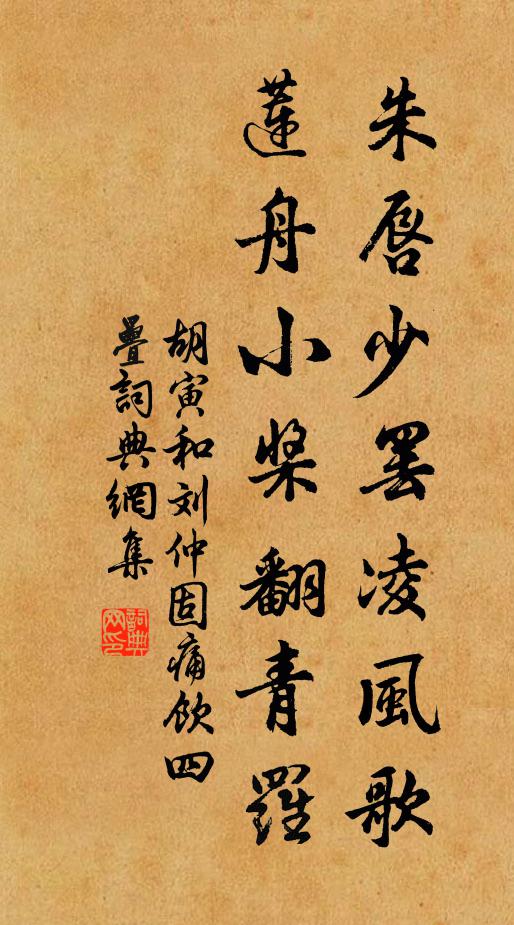 朱唇少罢凌風歌
蓮舟小槳翻青羅
胡寅和刘仲固痛飲四
疊詞典網集
詞典
网印